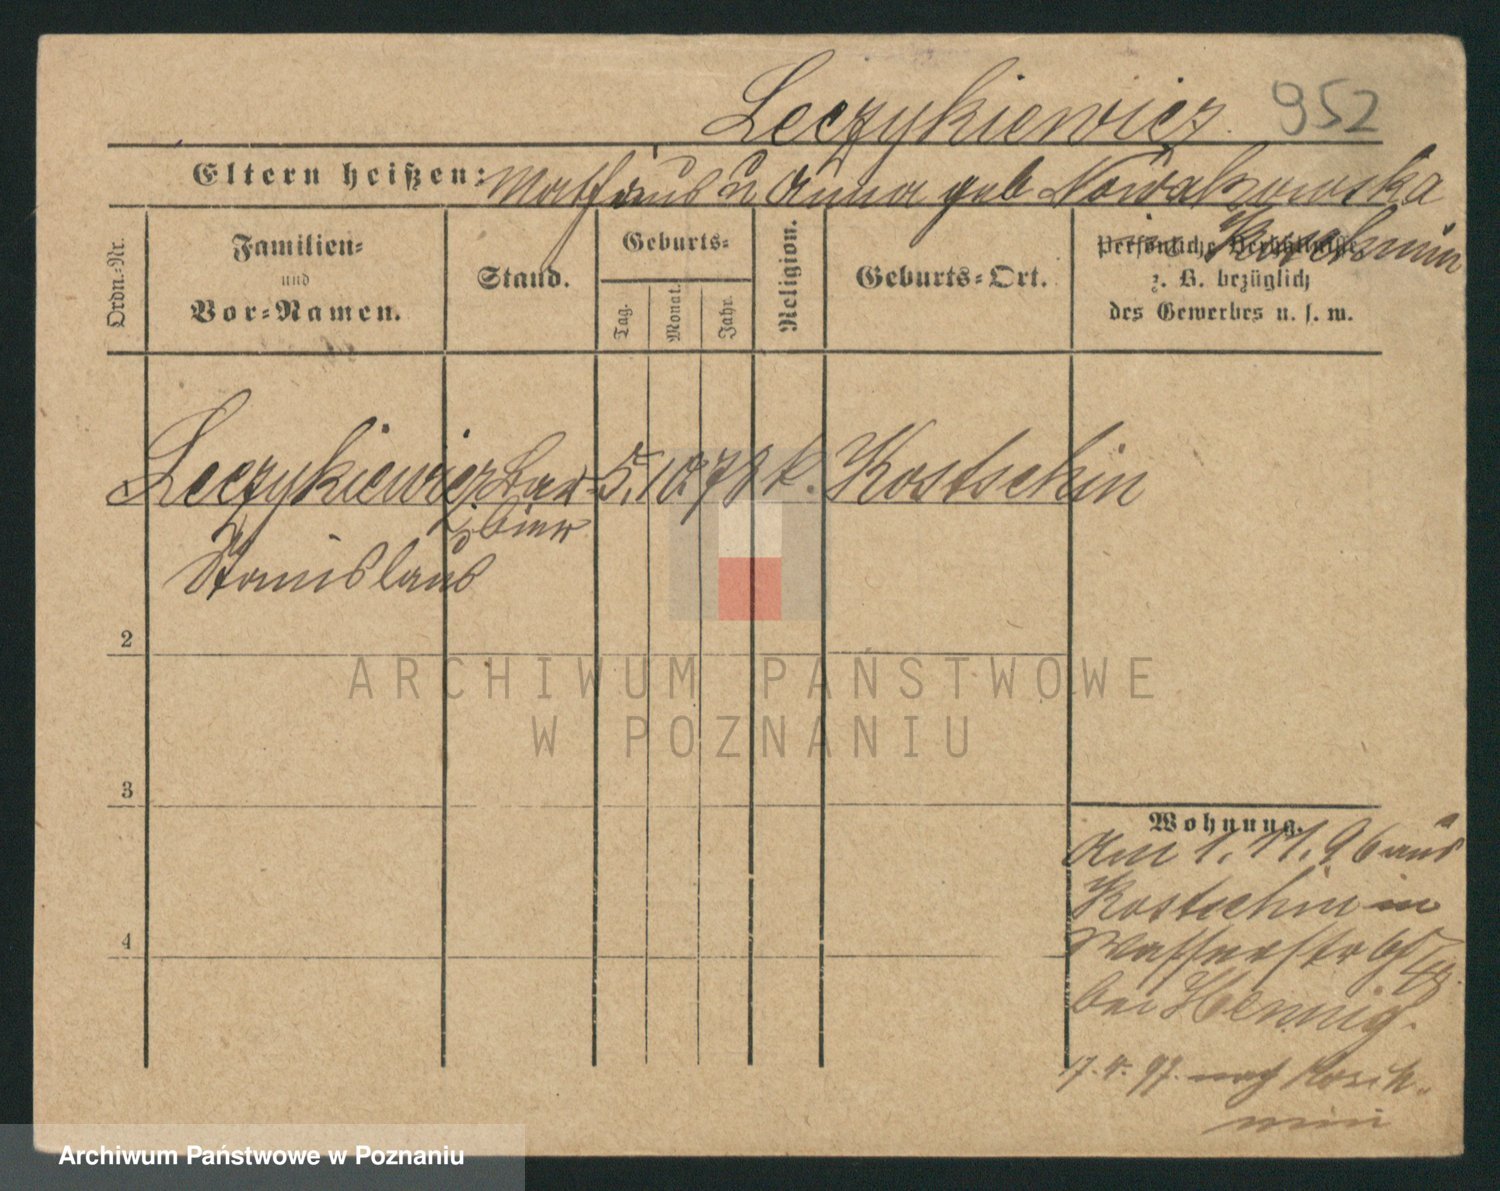 Leczykiewicz 952
Eltern heißen: Matthäus u Anna geb Nowakowska
Koschmin
Ordn.-Nr.
Familien-
und
Vor-Namen.
Stand.
Geburts-
Tag.
Monat.
Jahr.
Religion.
Geburts-Ort.
Persönliche Verhältnisse,
z. B. bezüglich
des Gewerbes u. s. w.
Leczykiewicz Bar- 5. 10. 78 k. Kostschin
bier
Stanislaus
2
3
4
Wohnung.
Am 1. 11. 96 aus
Kostschin in
Wasserstr
bei Hennig.
17. 4. 97. nach Kosch-
min
ARCHIWUM PAŃSTWOWE
W POZNANIU
Archiwum Państwowe w Poznaniu